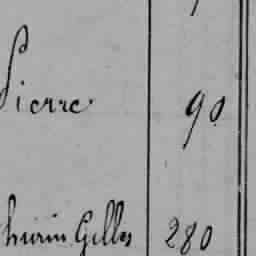 Pierre 90
thurin Gilles 280